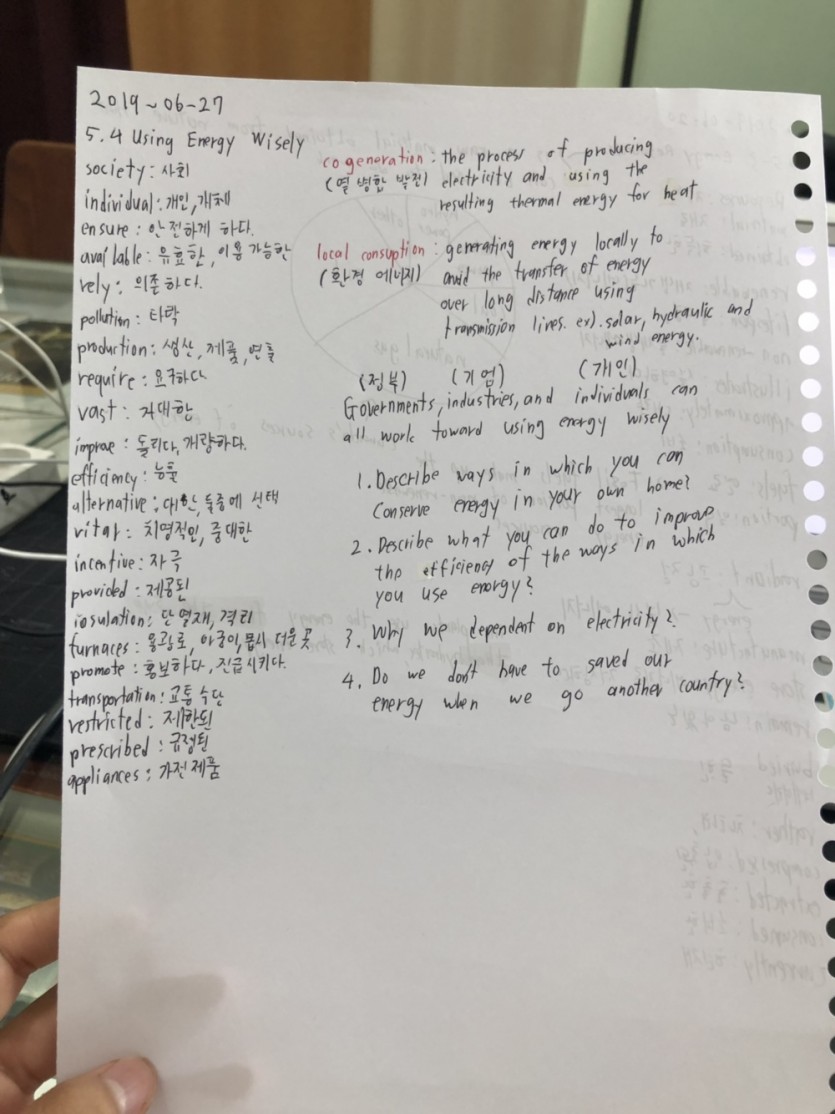 2019-06-27
5.4 Using Energy Wisely
society: 사회
individual: 개인, 개체
ensure: 안전하게 하다.
available: 유효한, 이용가능한
rely: 의존하다.
pollution: 타락
production: 생산, 제품, 연출
require: 요구하다
vast: 거대한
improve: 돌리다, 개량하다.
efficiency: 능률
alternative: 대안, 둘중에 선택
vital: 치명적인, 중대한
incentive: 자극
provided: 제공된
iosulation: 단열재, 격리
furnaces: 용광로, 아궁이, 몹시 더운 곳
promote: 홍보하다, 진급시키다.
transportation: 교통수단
restricted: 제한된
prescribed: 규정된
appliances: 가전제품
cogeneration: the process of producing
(열 병합 발전) electricity and using the
resulting thermal energy for heat
local consuption: generating energy locally to
(환경 에너지) avoid the transfer of energy
over long distance using
transmission lines. ex). solar, hydraulic and
wind energy.
(정부) (기업) (개인)
Governments, industries, and individuals can
all work toward using energy wisely
1. Describe ways in which you can
Conserve energy in your own home?
2. Describe what you can do to improve
the efficiency of the ways in which
you use energy?
3. Why we dependent on electricity?
4. Do we don't have to saved our
energy when we go another country?